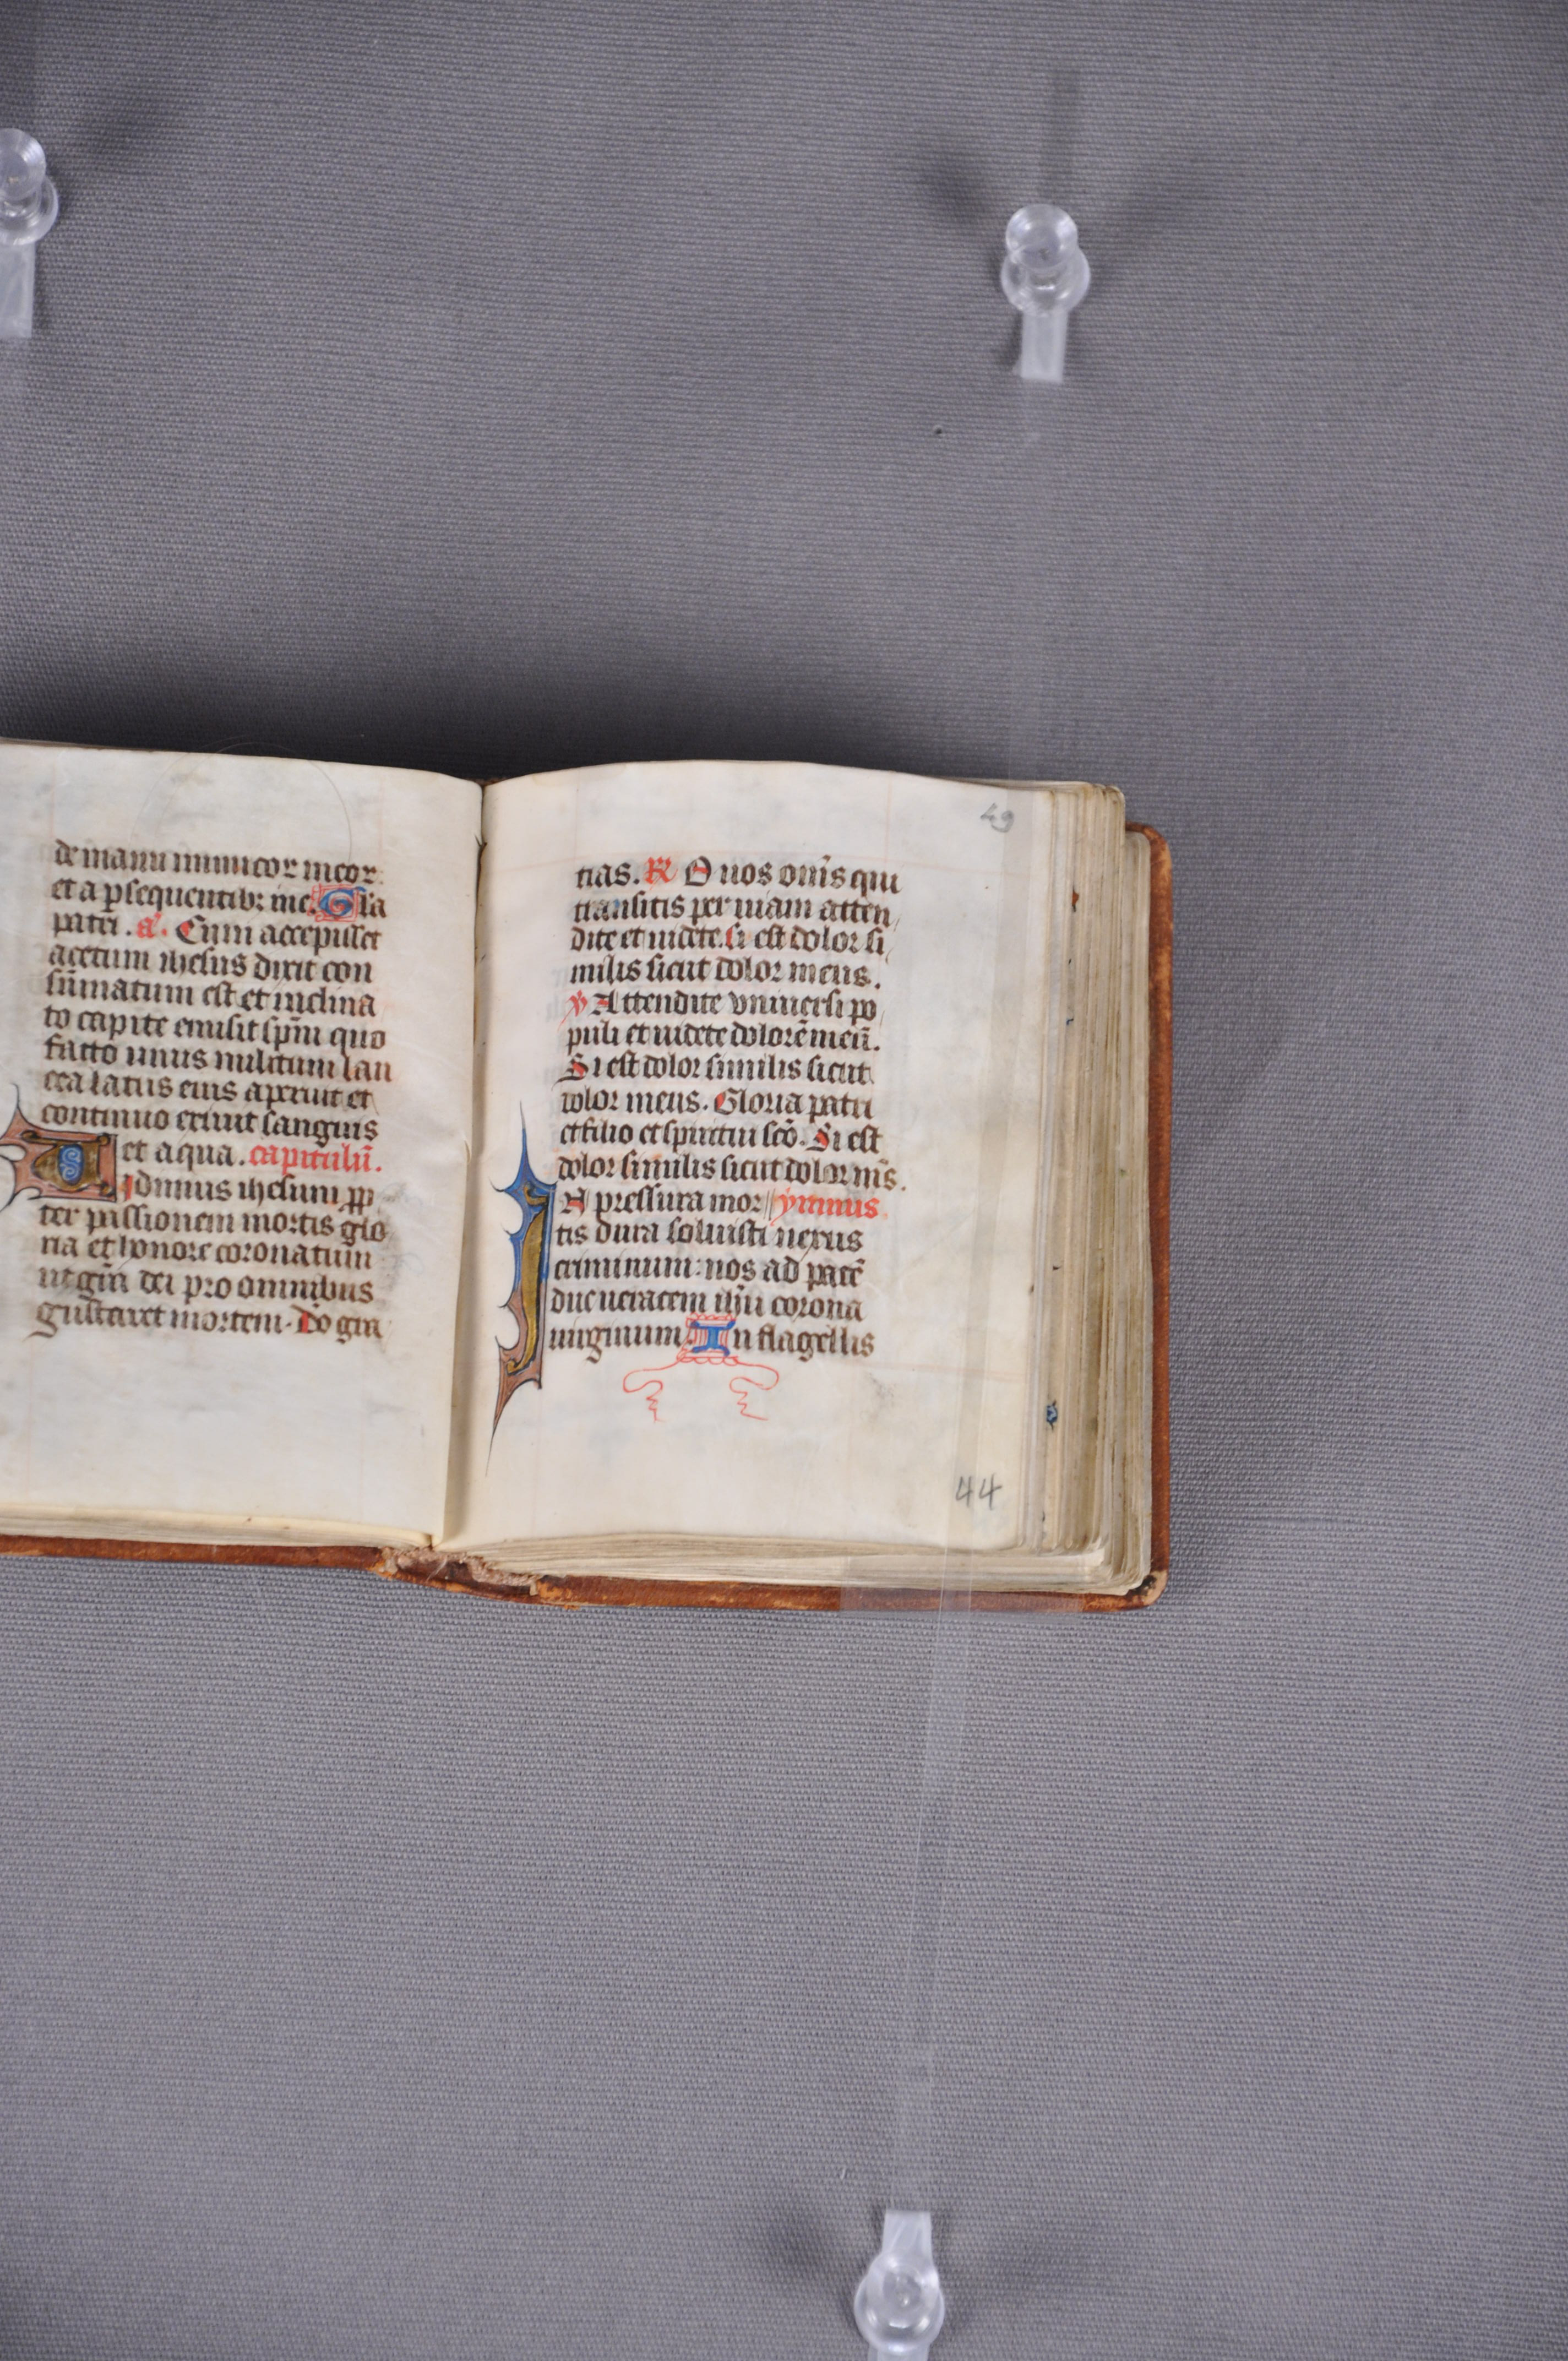 de manu inimicor meor
et a psequentibz me. Gla
patri. a. Cum accepisset
acetum ihesus dixit con
sūmatum est et inclina
to capite emisit spm̄ quo
facto unus militum lan
cea latus eius aperuit et
continuo exiuit sanguis
et aqua. capitulū.
Uidimus ihesum pp
ter passionem mortis glo
ria et honore coronatum
ut grā dei pro omnibus
gustaret mortem. Do grā
49
tias. R O uos om̄s qui
transitis per uiam atten
dite et uidete. si est dolor si
milis sicut dolor meus.
V Attendite vniuersi po
puli et uidete dolorē meū.
Si est dolor similis sicut
dolor meus. Gloria patri
et filio et spiritui scō. Si est
dolor similis sicut dolor m̄s.
In pressura mor ymnus
tis dura soluisti nexus
criminum: nos ad pacē
duc ueracem ihū corona
uirginum. In flagellis
44